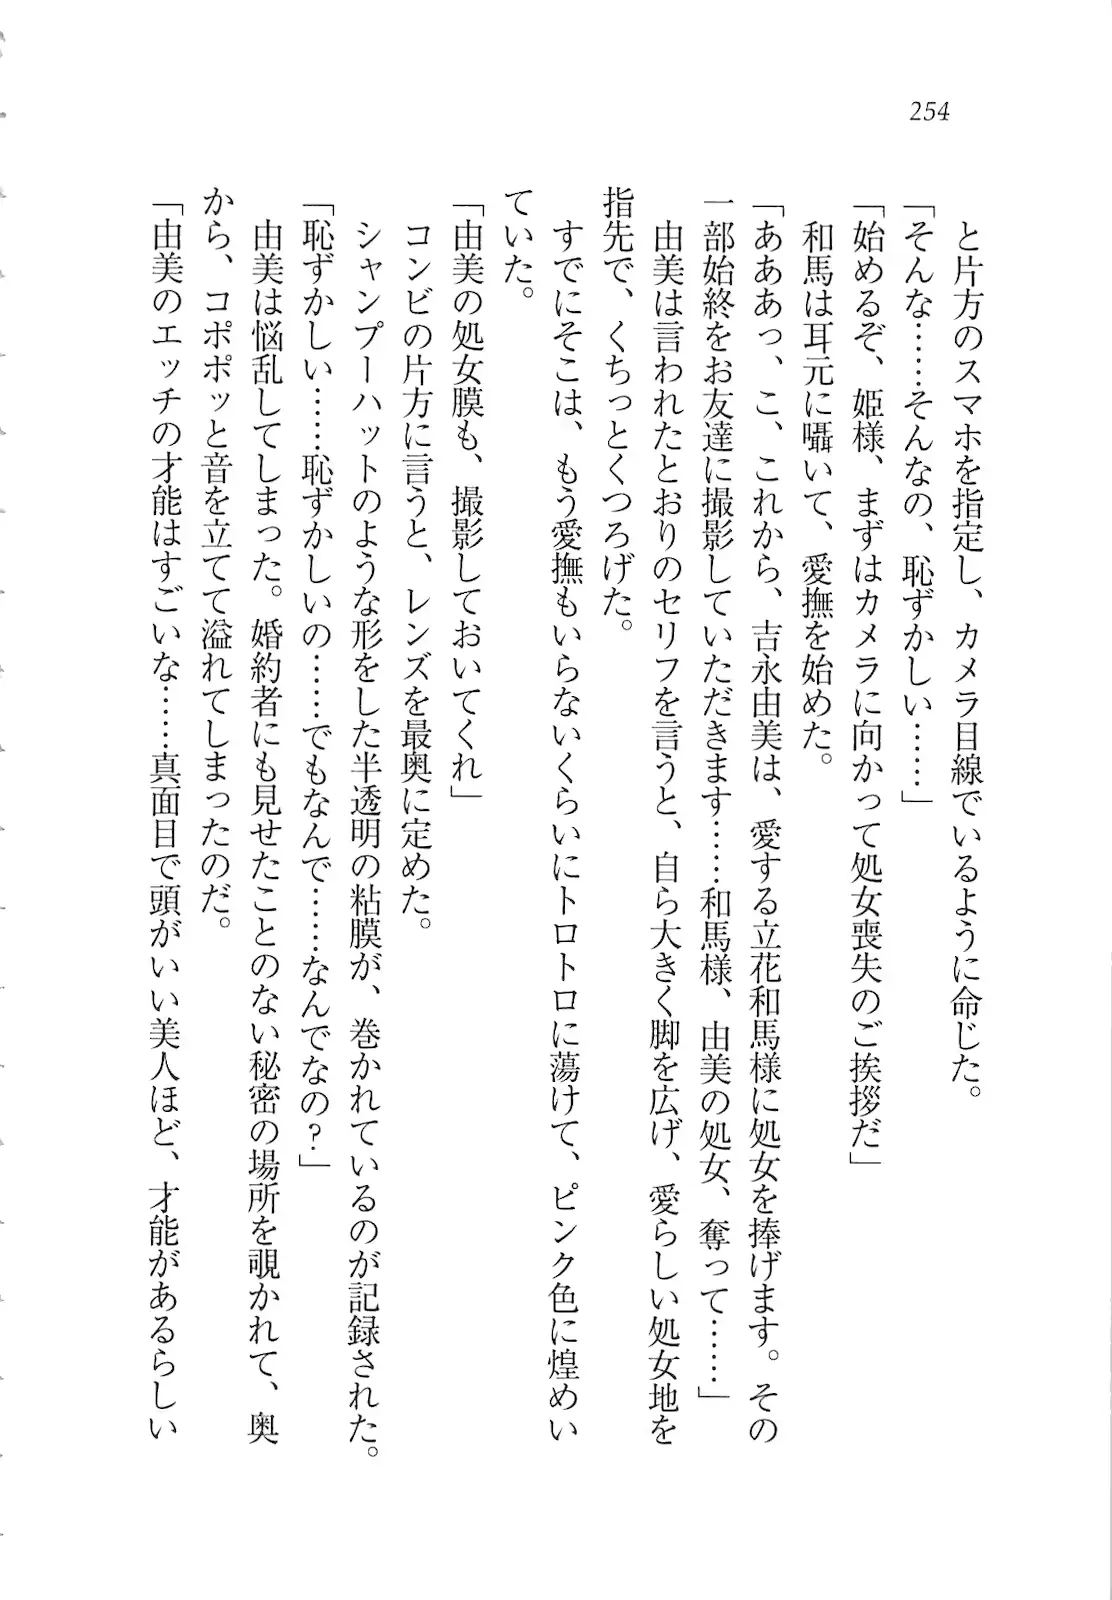 254
と片方のスマホを指定し、カメラ目線でいるように命じた。
「そんな……そんなの、恥ずかしい……」
「始めるぞ、姫様、まずはカメラに向かって処女喪失のご挨拶だ」
和馬は耳元に囁いて、愛撫を始めた。
「あああっ、こ、これから、吉永由美は、愛する立花和馬様に処女を捧げます。その
一部始終をお友達に撮影していただきます……和馬様、由美の処女、奪って……」
由美は言われたとおりのセリフを言うと、自ら大きく脚を広げ、愛らしい処女地を
指先で、くちっとくつろげた。
すでにそこは、もう愛撫もいらないくらいにトロトロに蕩けて、ピンク色に煌めい
ていた。
「由美の処女膜も、撮影しておいてくれ」
コンビの片方に言うと、レンズを最奥に定めた。
シャンプーハットのような形をした半透明の粘膜が、巻かれているのが記録された。
「恥ずかしい……恥ずかしいの……でもなんで……なんでなの？」
由美は悩乱してしまった。婚約者にも見せたことのない秘密の場所を覗かれて、奥
から、コポポッと音を立てて溢れてしまったのだ。
「由美のエッチの才能はすごいな……真面目で頭がいい美人ほど、才能があるらしい